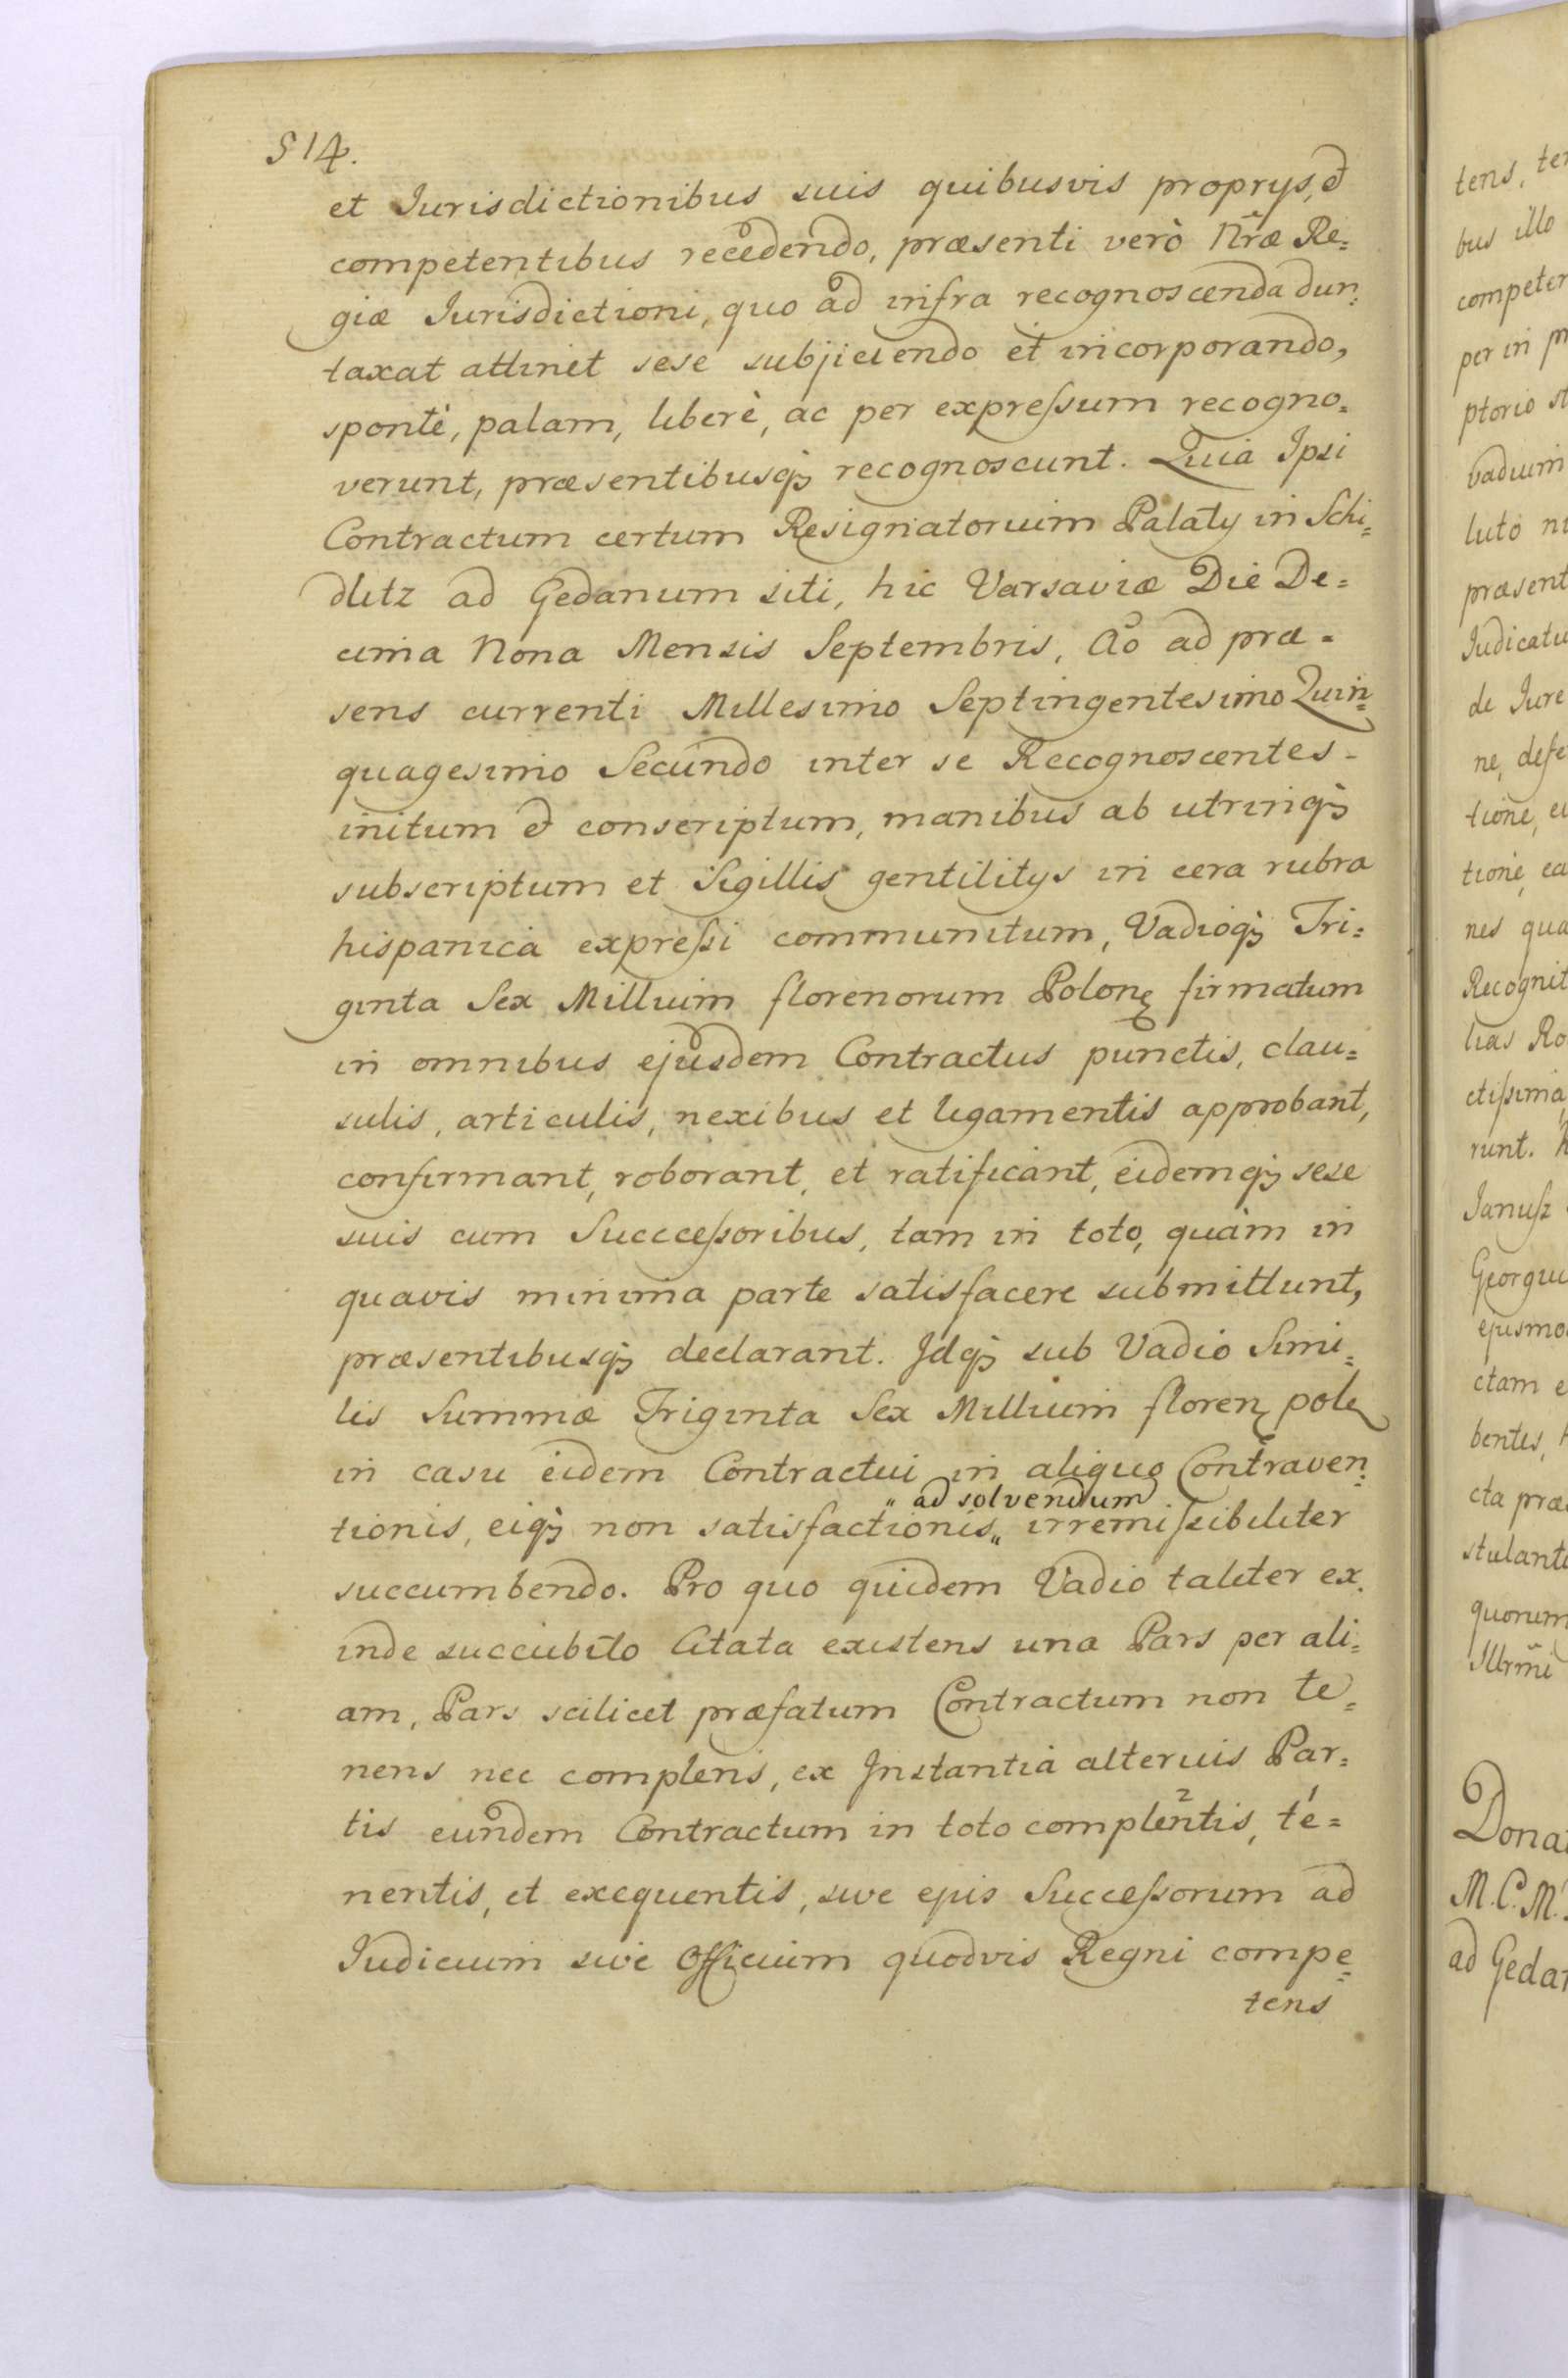 514.
et Jurisdictionibus suis quibusvis proprys, et
competentibus recedendo, præsenti verò Nr̃æ Re=
giæ Jurisdictioni, quo ad infra recognoscenda dun=
taxat attinet sese subjiciendo et incorporando,
spontè, palam, liberè, ac per expreſsum recogno=
verunt, præsentibusq₃ recognoscunt. Quia Ipsi
Contractum certum Resignatorium Palaty in Schi=
dlitz ad Gedanum siti, hic Varsaviæ Die De=
cima Nona Mensis Septembris, Aõ ad præ=
sens currenti Millesimo Septingentesimo Quin=
quagesimo Secundo inter se Recognoscentes-
initum et conscriptum, manibus ab utrinq₃
subscriptum et Sigillis gentilitys in cera rubra
hispanica expreſsi communitum, Vadioq₃ Tri=
ginta Sex Millium florenorum Polonę firmatum
in omnibus ejusdem Contractus punctis, clau=
sulis, articulis, nexibus et ligamentis approbant,
confirmant, roborant, et ratificant, eidemq₃ sese
suis cum Succceſsoribus, tam in toto, quàm in
quavis minima parte satisfacere submittunt,
præsentibusq₃ declarant. Idq₃ sub Vadio Simi=
lis Summæ Triginta Sex Millium florenę polę
in casu eidem Contractui in aliquo Contraven=
" ad solvendum
tionis, eiq₃ non satisfactionis„ irremiſsibiliter
succumbendo. Pro quo quidem Vadio taliter ex
inde succubito Citata existens una Pars per ali=
am, Pars scilicet præfatum Contractum non te=
nens nec complens, ex Instantia alterius Par=
tis eundem Contractum in toto complen̄tis, te=
nentis, et exequentis, sive ejus Succeſsorum ad
Judicium sive Officium quodvis Regni compe=
tens
tens, ter
bus illo
competen
per in
ptorio st
vadium
luto
præsent
Judicatu
de Jure
ne, defe
tione,
tione, ea
nes qua
Recognit
lias Ro
ctiſsima,
runt.
Januſz
Georgiu
ejusmo
ctam e
bentes,
cta præ
stulant
quorum
Illr̃mi
Donat
M.C.M.
ad Gedan